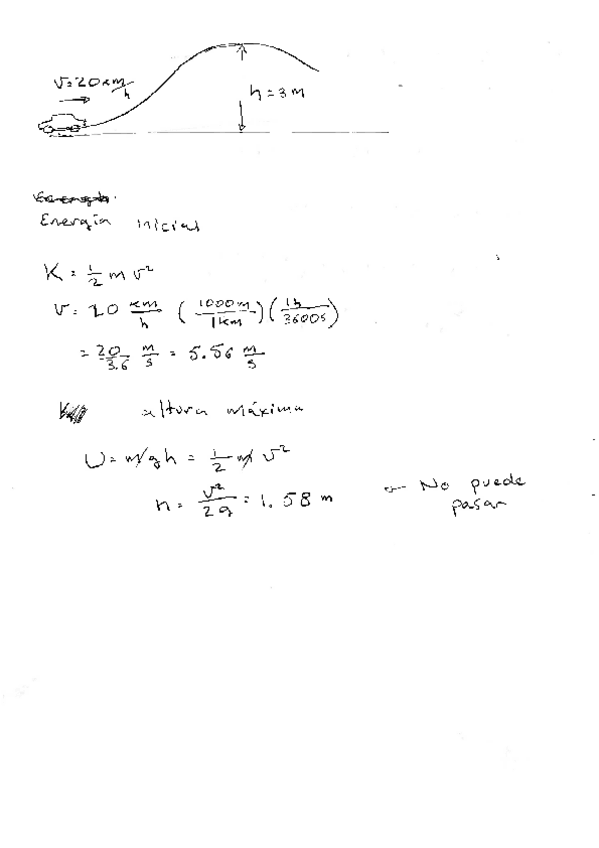 v=20 km/h
h=3m
Energía inicial
K = 1/2 m v²
v = 20 km/h (1000m/1km)(1h/3600s)
= 20/3.6 m/s = 5.56 m/s
altura máxima
U = mgh = 1/2 m v²
h = v²/2g = 1.58 m ← No puede
pasar